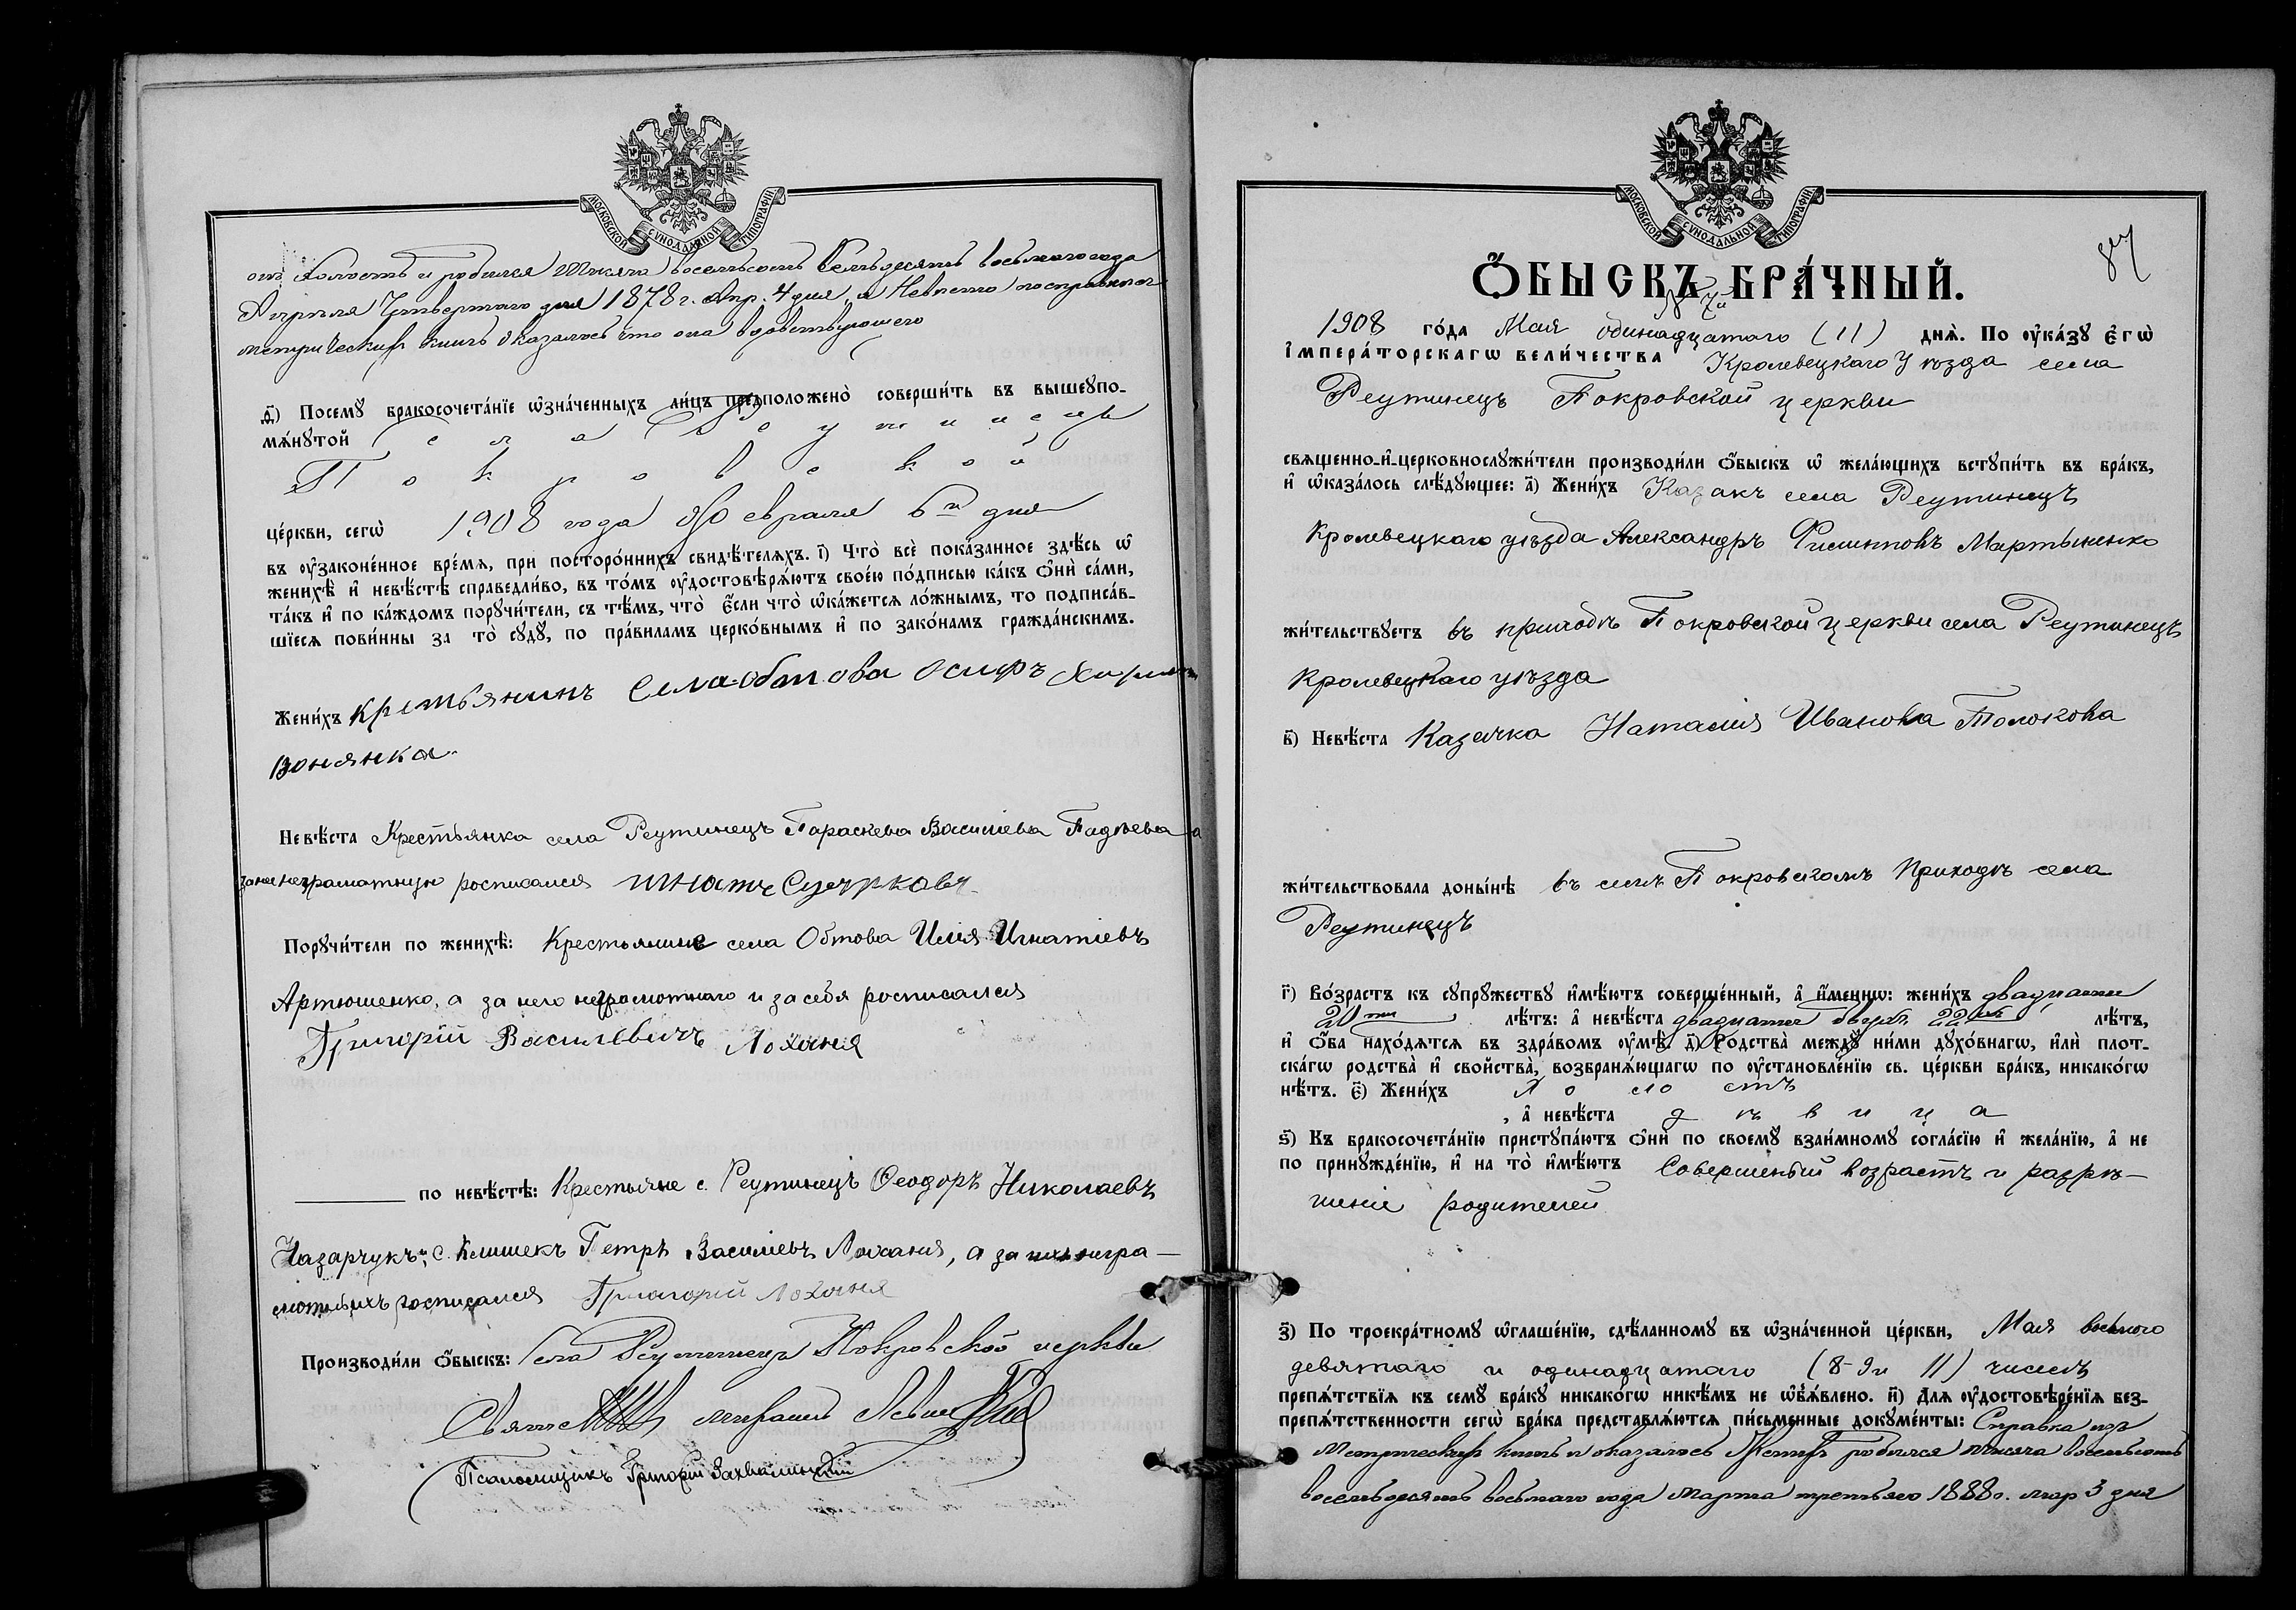 МОСКОВСКОЙ СѴНОДАЛЬНОЙ ТИПОГРАФІИ
холостъ и родился тысяча восемьсотъ Семьдесятъ восьмого года
Апрѣля Четвертаго дня 1878 г. Апр. 4 дня, а Невѣста по справкѣ
метрическихъ книгъ оказалось что она
д҃і) Посемꙋ̀ бракосочета́нїе ѡ҆зна́ченныхъ ли́цъ предположено̀ соверши́ть въ вышеупо-
мѧ́нꙋтой села Реутинецъ
Покровской
це́ркви, сегѡ̀ 1908 года февраля 6го дня
въ ᲂу҆законе́нное вре́мѧ, при посторо́ннихъ свидѣ́телѧхъ. і҃) Что̀ всѐ пока́занное здѣ́сь ѡ҆
женихѣ̀ и҆ невѣ́стѣ справедли́во, въ то́мъ ᲂу҆достовѣрѧ́ютъ свое́ю по́дписью ка́къ ѻ҆нѝ са́ми,
та́къ и҆ по ка́ждомъ порꙋчи́тели, съ тѣ́мъ, что̀ є҆́сли что̀ ѡ҆ка́жетсѧ ло́жнымъ, то подписа́в-
шїесѧ пови́нны за то̀ сꙋдꙋ̀, по пра́виламъ церко́внымъ и҆ по зако́намъ гражда́нскимъ.
Жени́хъ крестьянинъ села Обтова Осифъ
Вонянка
Невѣ́ста Крестьянка села Реутинецъ Параскева Василіева Гадѣева а
за нее неграматную росписался игнатъ
Порꙋчи́тели по женихѣ̀: Крестьянине села Обтова Илія Игнатіевъ
Артюшенко, а за него неграмотнаго и за себя росписался
Григорій Василевичъ Лоханя
по невѣ́стѣ: Крестьяне с. Реутинецъ Ѳеодоръ Николаевъ
Назарчукъ и с. Клишекъ Петръ Василіевъ Лоханя, а за ихъ негра-
мотныхъ росписался Григорій Лоханя
Производи́ли ѻ҆́быскъ: Села Реутинецъ Покровской церкви
Священникъ
Псаломщикъ Григорій
МОСКОВСКОЙ СѴНОДАЛЬНОЙ ТИПОГРАФІИ
87
Ѻ҆́БЫСКЪ БРА́ЧНЫЙ.
№ 7й
1908 го́да Мая одинадцатаго (11) днѧ̀. По ᲂу҆ка́зꙋ Є҆гѡ̀
І҆мпера́торскагѡ вели́чества Кролевецкаго уѣзда села
Реутинецъ Покровской церкви
свѧщенно-и҆-церковнослꙋжи́тели производи́ли ѻ҆́быскъ ѡ҆ жела́ющихъ вступи́ть въ бра́къ,
и҆ ѡ҆каза́лось слѣ́дꙋющее: а҃) Жени́хъ Казакъ села Реутинецъ
Кролевецкаго уѣзда Александръ Филиповъ Мартыненко
жи́тельствꙋетъ въ приходѣ Покровской церкви села Реутинецъ
Кролевецкаго уѣзда
в҃) Невѣ́ста Казачка Наталія Иванова Толокова
жи́тельствовала доны́нѣ въ семъ Покровскомъ Приходѣ села
Реутинецъ
г҃) Во́зрастъ къ сꙋпрꙋ́жествꙋ и҆мѣ́ютъ соверше́нный, а҆ и҆́меннѡ: жени́хъ двадцати
20 ти лѣ́тъ: а҆ невѣ́ста двадцати двухъ 22хъ лѣ́тъ,
и҆ ѻ҆́ба нахо́дѧтсѧ въ здра́вомъ ᲂу҆мѣ̀. д҃) Родства̀ междꙋ̀ ни́ми дꙋхо́внагѡ, и҆лѝ плот-
ска́гѡ родства̀ и҆ сво́йства̀, возбранѧ́ющагѡ по ᲂу҆становле́нїю св. це́ркви бра́къ, никако́гѡ
нѣ́тъ. є҃) Жени́хъ холостъ
, а҆ невѣ́ста дѣвица
ѕ҃) Къ бракосочета́нїю пристꙋпа́ютъ ѻ҆нѝ по своемꙋ̀ взаи́мномꙋ согла́сїю и҆ жела́нїю, а҆ не
по принꙋжде́нїю, и҆ на то̀ и҆мѣ́ютъ Совершеный возрастъ и разрѣ-
шеніе родителей
з҃) По троекра́тномꙋ ѡ҆глаше́нїю, сдѣ́ланномꙋ въ ѡ҆зна́ченной це́ркви, Мая восьмого
девятаго и одинадцатаго (8-9 и 11) числъ
препѧ́тствїѧ къ семꙋ̀ бра́кꙋ никако́гѡ никѣ́мъ не ѡ҆б̾ѧ́влено. и҃) Длѧ ᲂу҆достовѣре́нїѧ без-
препѧ́тственности сегѡ̀ бра́ка представлѧ́ютсѧ пи́сьменные докꙋме́нты: Справка изъ
Метрическихъ книгъ и оказалось Женихъ родился тысяча восемьсотъ
восемьдесятъ восьмаго года Марта третьяго 1888 г. мар 3 дня